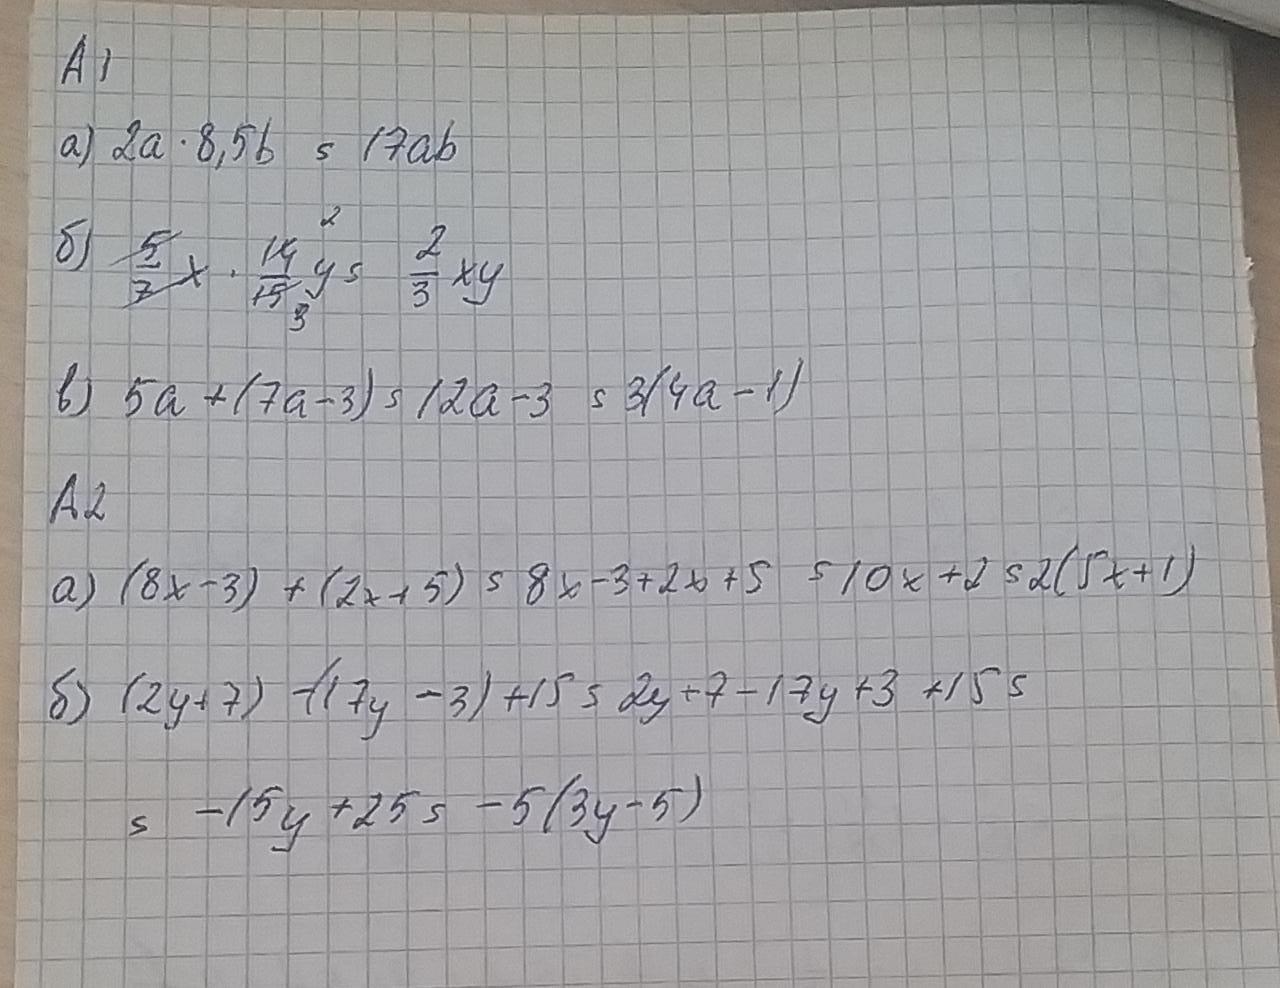 А1
а) 2a · 8,5b = 17ab
б) 5/7 x · 14/15 y = 2/3 xy
2
3
в) 5a + (7a - 3) = 12a - 3 = 3(4a - 1)
А2
а) (8x - 3) + (2x + 5) = 8x - 3 + 2x + 5 = 10x + 2 = 2(5x + 1)
б) (2y + 7) - (17y - 3) + 15 = 2y + 7 - 17y + 3 + 15 =
= -15y + 25 = -5(3y - 5)